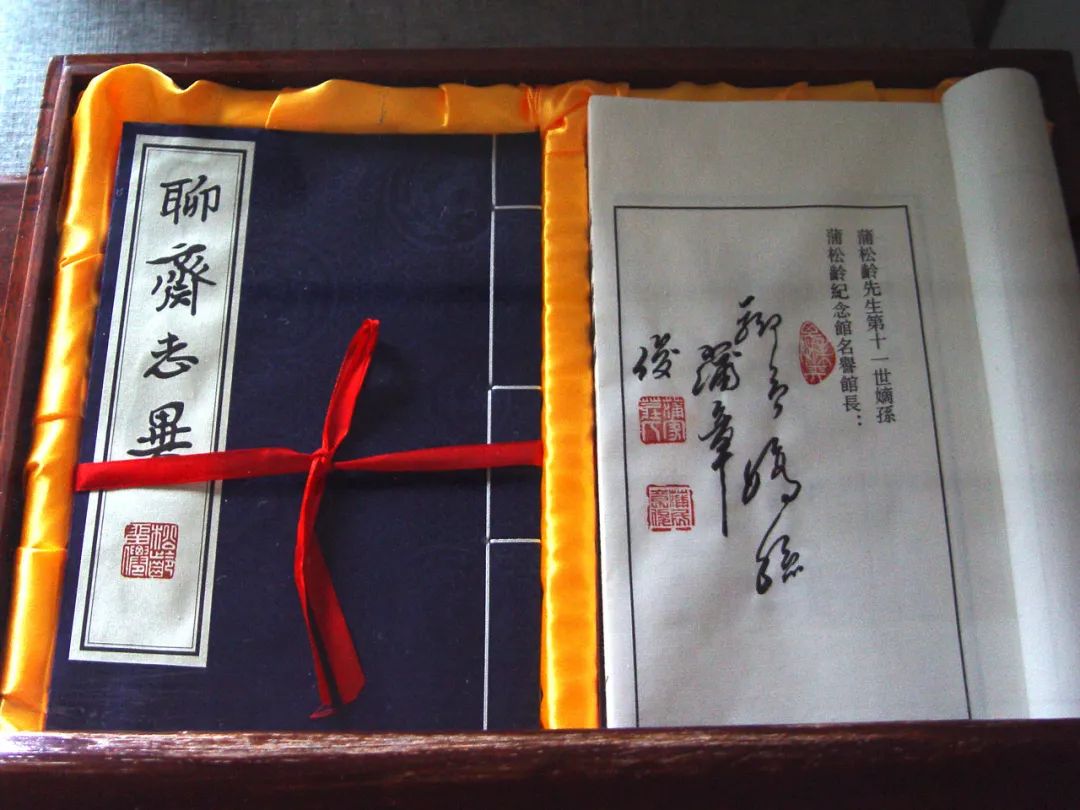 聊齋志異
蒲松齡先生第十一世嫡孫
蒲松齡紀念館名譽館長…
聊斋嫡孫
蒲章俊